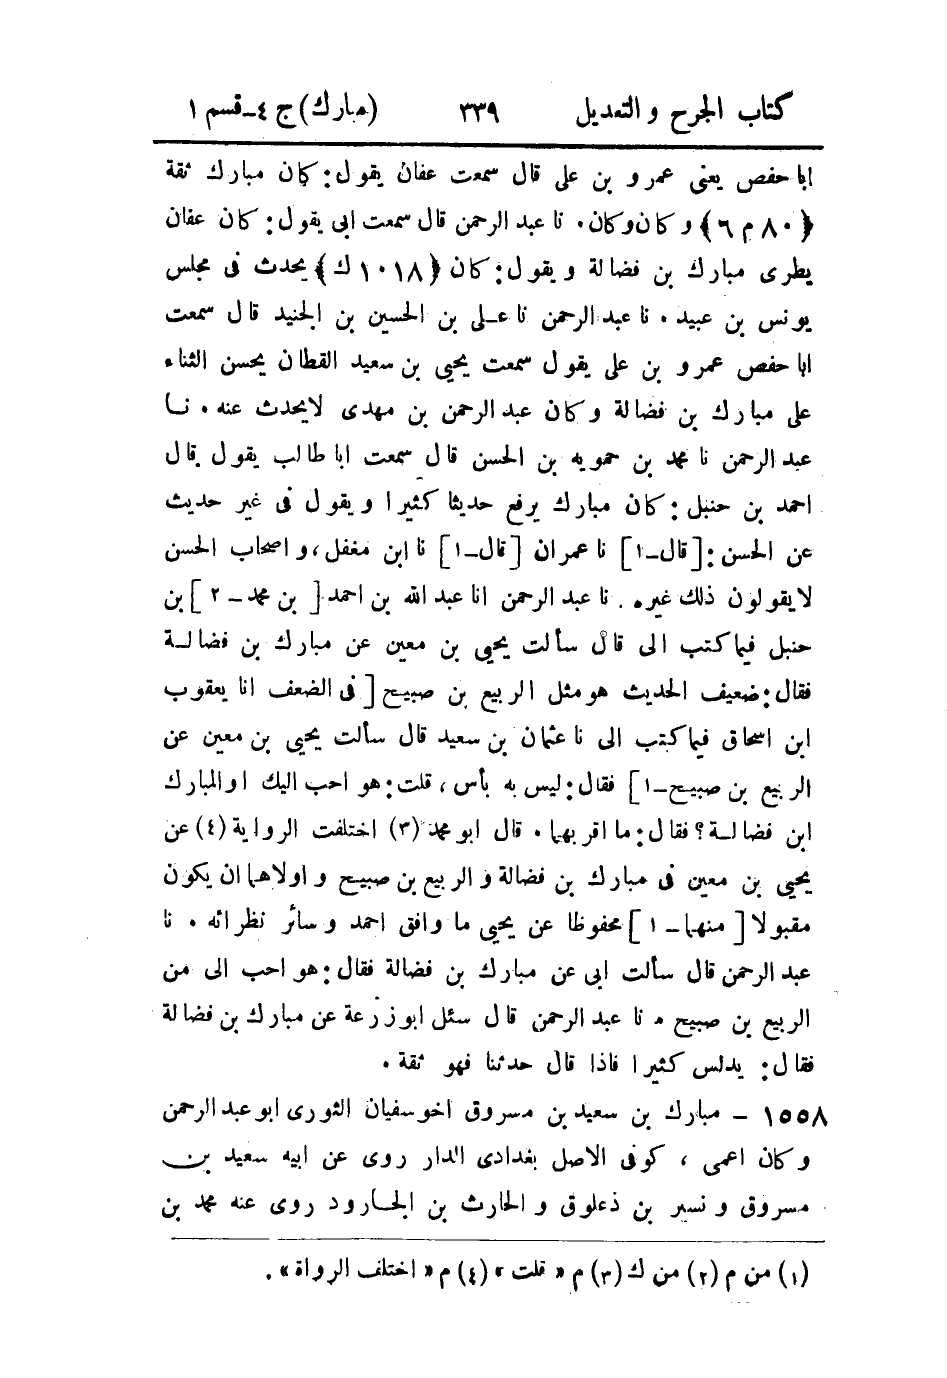 كتاب الجرح والتعديل ٣٣٩ (مبارك) ج ٤-قسم ١
ابا حفص يعنى عمرو بن على قال سمعت عفان يقول: كان مبارك ثقة
﴿٨٠ م ٦﴾ وكان وكان. نا عبد الرحمن قال سمعت ابى يقول: كان عفان
يطرى مبارك بن فضالة ويقول: كان ﴿١٠١٨ ك﴾ يحدث فى مجلس
يونس بن عبيد. نا عبد الرحمن نا عـلى بن الحسين بن الجنيد قال سمعت
ابا حفص عمرو بن على يقول سمعت يحيى بن سعيد القطان يحسن الثناء
على مبارك بن فضالة وكان عبد الرحمن بن مهدى لايحدث عنه. نـا
عبد الرحمن نا محمد بن حمويه بن الحسن قال سمعت ابا طالب يقول قال
احمد بن حنبل: كان مبارك يرفع حديثا كثيرا ويقول فى غير حديث
عن الحسن: [قال-١] نا عمران [قال-١] نا ابن مغفل، واصحاب الحسن
لايقولون ذلك غيره. نا عبد الرحمن انا عبد الله بن احمد [بن محمد - ٢] بن
حنبل فيما كتب الى قال سألت يحيى بن معين عن مبارك بن فضالـة
فقال: ضعيف الحديث هو مثل الربيع بن صبيح [فى الضعف انا يعقوب
ابن اسحاق فيما كتب الى نا عثمان بن سعيد قال سألت يحيى بن معين عن
الربيع بن صبيح-١] فقال: ليس به بأس، قلت: هو احب اليك او المبارك
ابن فضالـة؟ فقال: ما اقربهما. قال ابو محمد (٣) اختلفت الرواية (٤) عن
يحيى بن معين فى مبارك بن فضالة والربيع بن صبيح واولاهما ان يكون
مقبولا [منهما - ١] محفوظا عن يحيى ما وافق احمد وسائر نظرائه. نا
عبد الرحمن قال سألت ابى عن مبارك بن فضالة فقال: هو احب الى من
الربيع بن صبيح. نا عبد الرحمن قال سئل ابو زرعة عن مبارك بن فضالة
فقال: يدلس كثيرا فاذا قال حدثنا فهو ثقة.
١٥٥٨ - مبارك بن سعيد بن مسروق اخو سفيان الثورى ابو عبد الرحمن
وكان اعمى، كوفى الاصل بغدادى الدار روى عن ابيه سعيد بن
مسروق ونسير بن ذعلوق والحارث بن الجارود روى عنه محمد بن
(١) من م (٢) من ك (٣) م «قلت» (٤) م «اختلف الرواة».